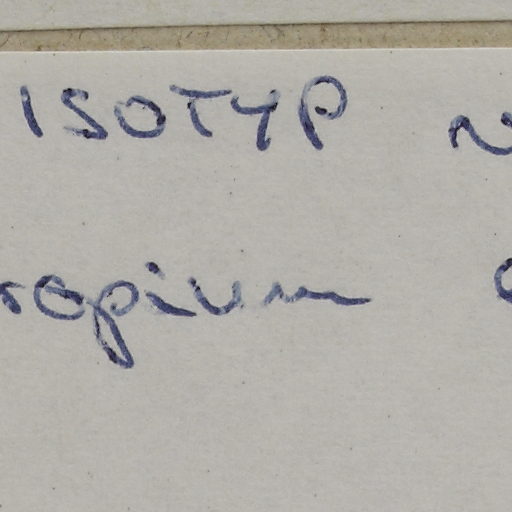 ISOTYP
ropium